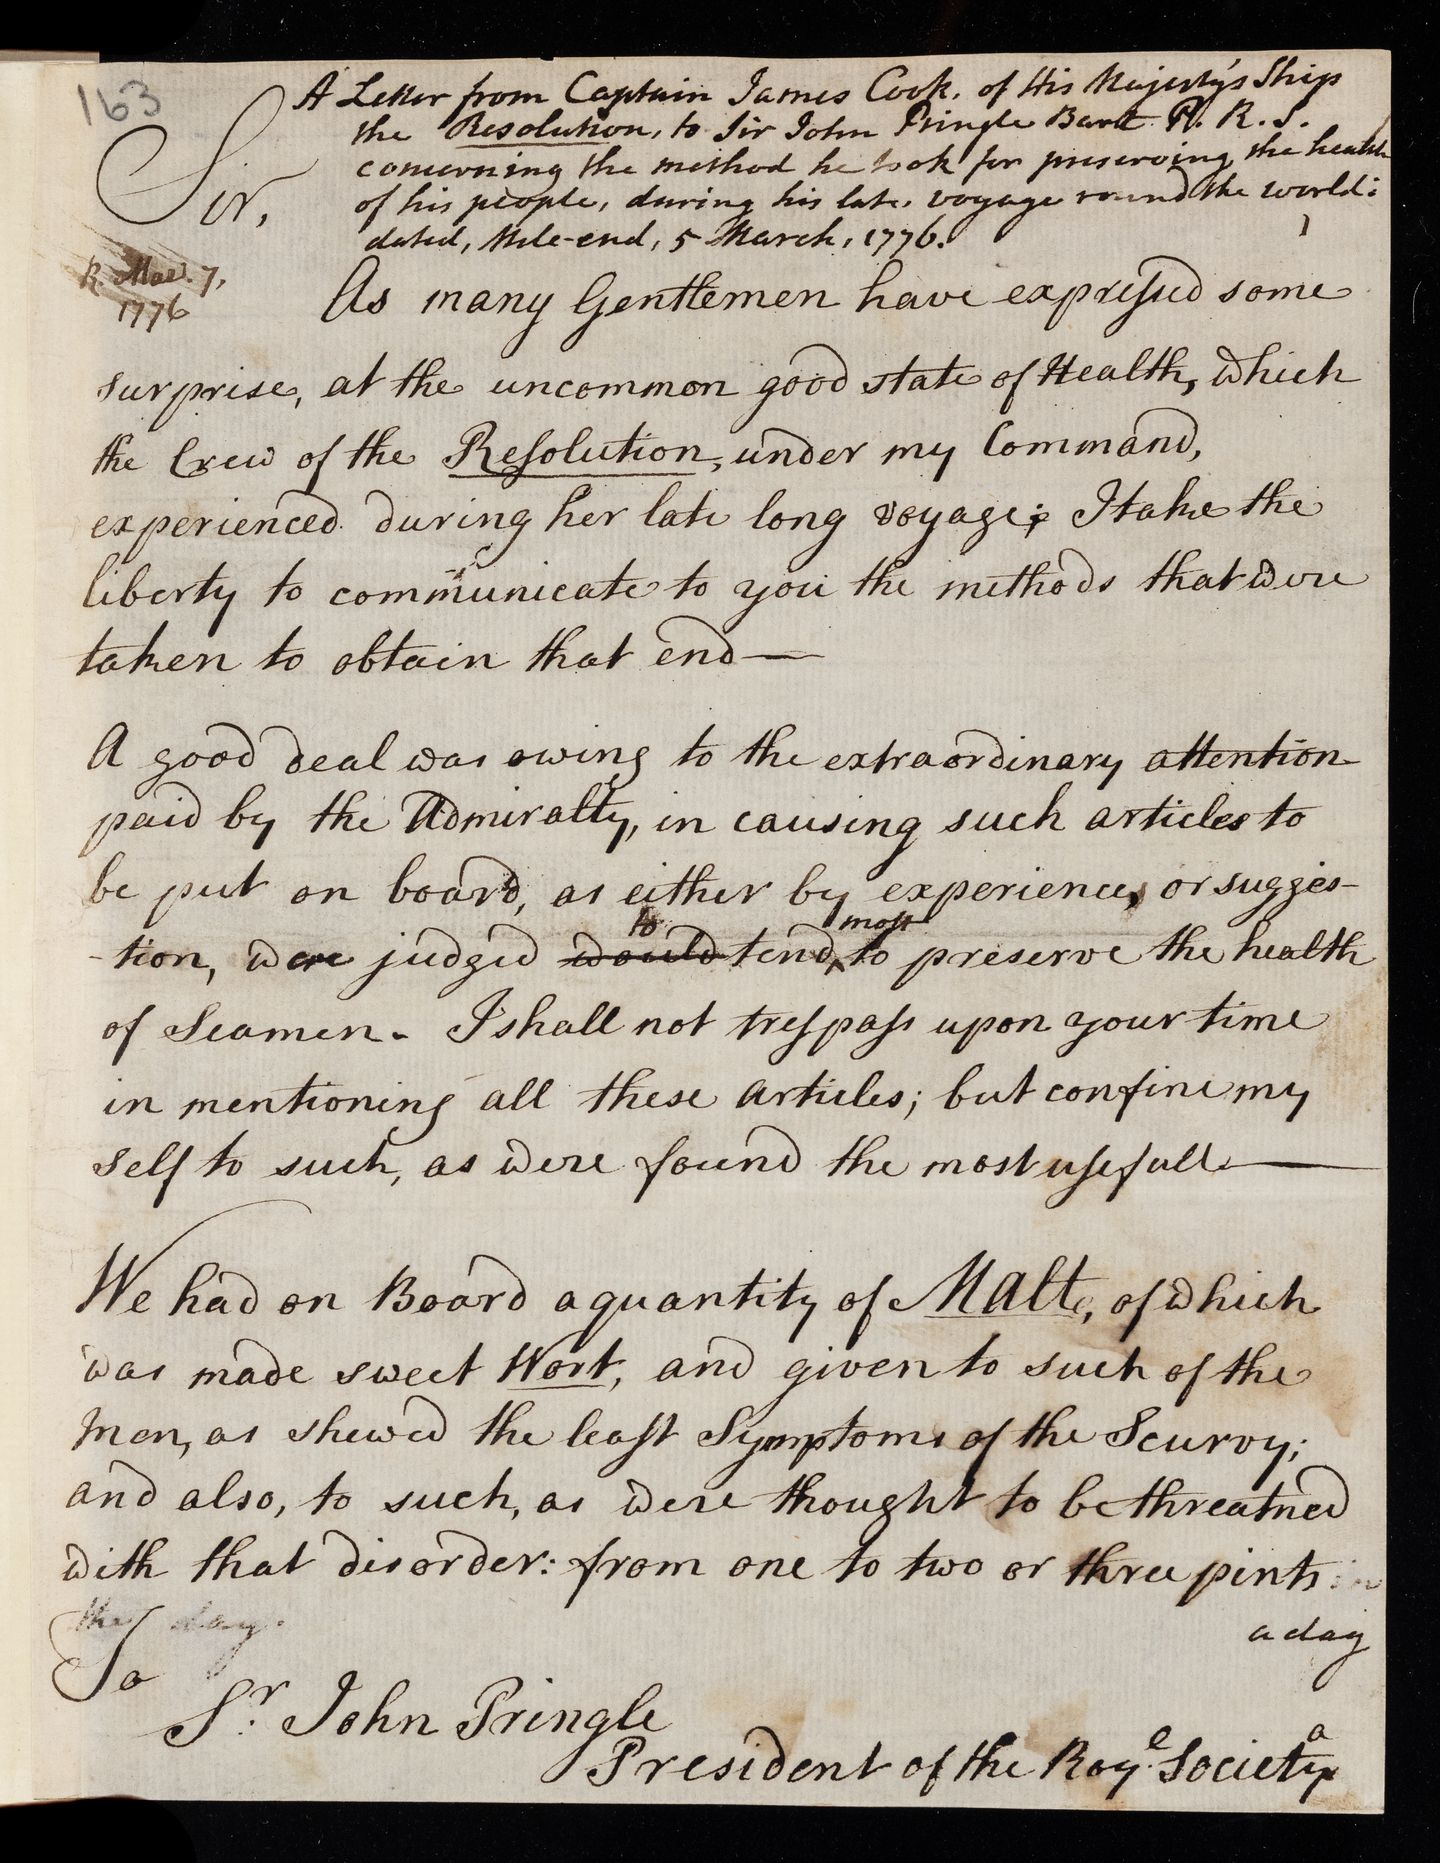 163
A Letter from Captain James Cook, of His Majesty's Ship
the Resolution, to Sir John Pringle Bart. P. R. S.
concerning the method he took for preserving the health
of his people, during his late, voyage round the world:
dated, Mile-end, 5 March, 1776.
Sir,
R. Mar. 7,
1776
As many Gentlemen have expreſsed some
surprise, at the uncommon good state of Health, which
the Crew of the Reſolution, under my Command,
experienced during her late long voyage; I take the
liberty to communicate to you the methods that were
taken to obtain that end—
A good deal was owing to the extraordinary attention
paid by the Admiralty, in causing such articles to
be put on board, as either by experience, or sugges-
to most
-tion, were judged would tend to preserve the health
of Seamen. I shall not treſpaſs upon your time
in mentioning all these articles; but confine my
self to such, as were found the most uſefull—
We had on Board a quantity of Malt, of which
was made sweet Wort, and given to such of the
Men, as shewed the leaſt Symptoms of the Scurvy;
and also, to such, as were thought to be threatned
with that disorder: from one to two or three pints in
the day.
a day
To
Sr. John Pringle
President of the Roye. Societya